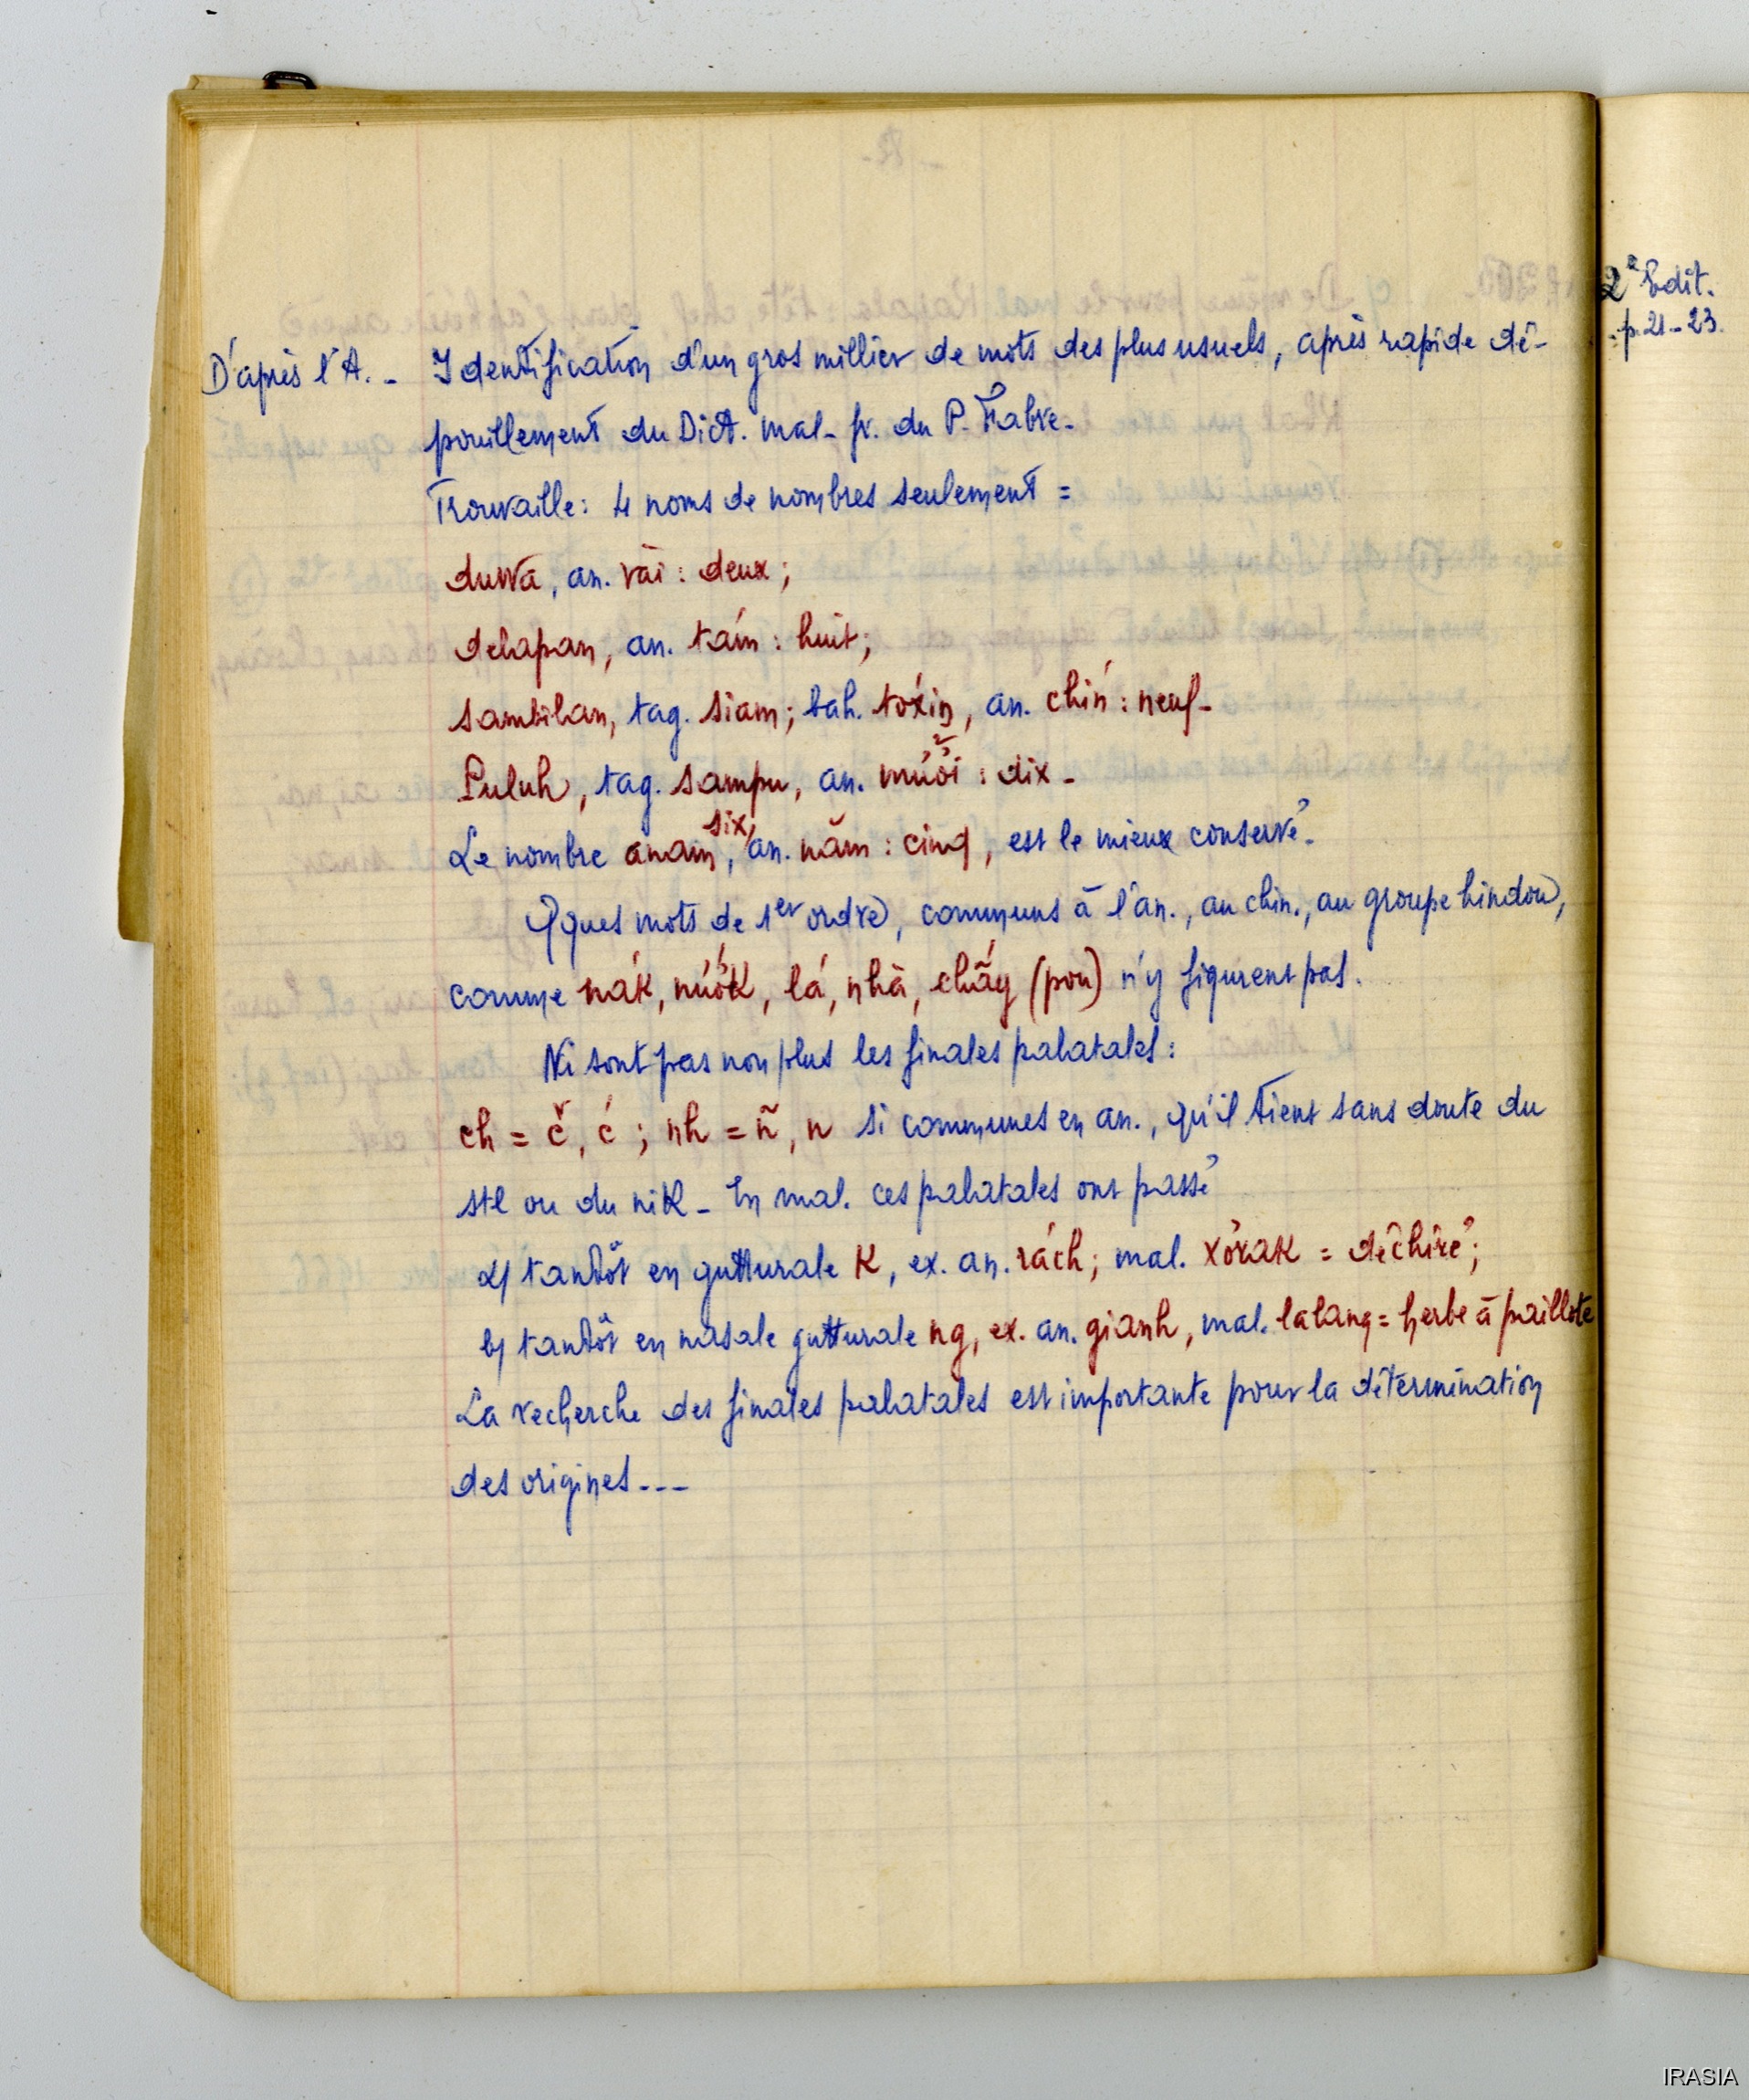 D'après l'A. - Identification d'un gros millier de mots des plus usuels, après rapide dé-
pouillement du Dict. mal- fr. du P. Fabre.
Trouvaille : 4 noms de nombres seulement =
duwa, an. vài : deux ;
delapan, an. tám : huit ;
sambilan, tag. siam ; bah. toxin, an. chín : neuf -
Puluh, tag. sampu, an. mười : dix -
Le nombre anam, six, an. năm : cinq, est le mieux conservé.
Qques mots de 1er ordre, communs à l'an., au chin., au groupe hindou,
comme nák, nướk, lá, nhà, chấy (pou) n'y figurent pas.
Ni sont pas non plus les finales palatales :
ch = č, ć ; nh = ñ, n si communes en an., qu'il tient sans doute du
ste ou du nik - En mal. ces palatales ont passé
a/ tantôt en gutturale K, ex. an. rách ; mal. xơrak = déchiré ;
b/ tantôt en nasale gutturale ng, ex. an. gianh, mal. lalang = herbe à paillote
La recherche des finales palatales est importante pour la détermination
des origines ---
2e Edit.
p. 21 - 23.
IRASIA